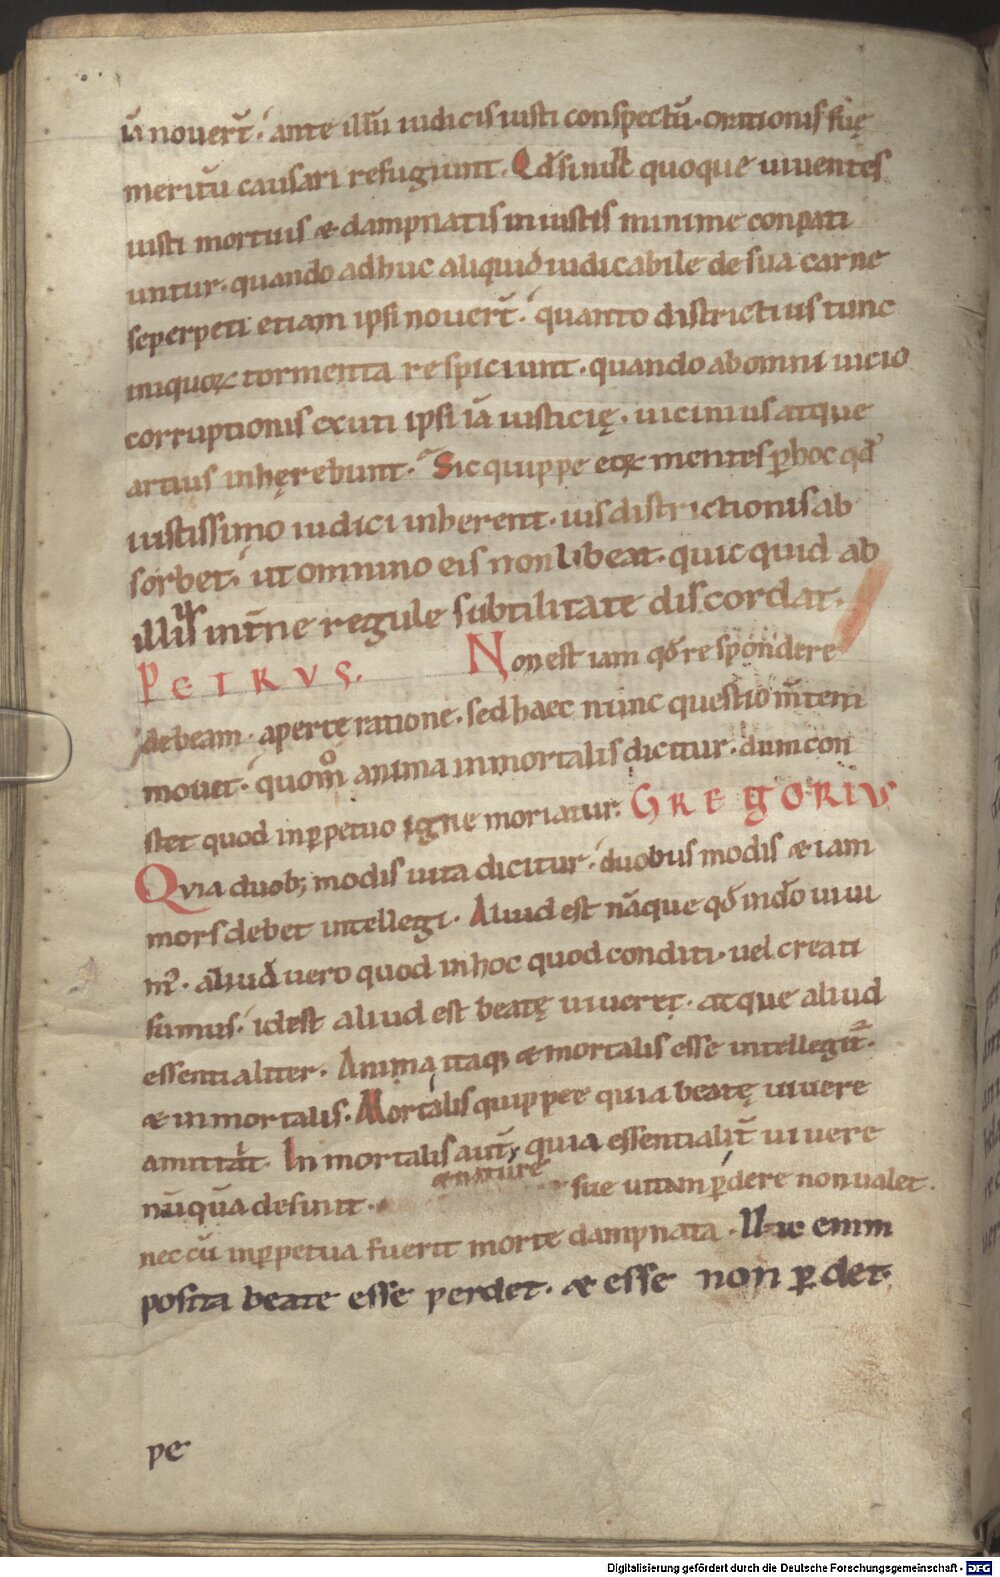 iā nouer̄t. ante illū iudicis iusti conspectū. orationis suę
meritū causari refugiunt. Qd̄ si nunc quoque uiuentes
iusti mortuis & dampnatis iniustis minime conpati
untur. quando adhuc aliquid iudicabile de sua carne
se perpeti etiam ipsi nouer̄t. quanto districtius tunc
iniquoꝝ tormenta respiciunt. quando ab omni uicio
corruptionis exuti ipsi iā iusticię. uicinius atque
artius inhęrebunt. Sic quippe eoꝝ mentes ꝑ hoc qd̄
iustissimo iudici inherent. uis districtionis ab
sorbet. ut omnino eis non libeat. quicquid ab
illius int̄ne regule subtilitate discordat.
PETRVS. Non est iam qd̄ respondere
debeam. aperte ratione. sed haec nunc questio m̄tem
mouet. quom̊ anima inmortalis dicitur. dum con
stet quod inꝑpetuo igne moriatur. GREGORIVS
Qvia duob; modis uita dicitur. duobus modis & iam
mors debet intellegi. Aliud est nāque qd̄ in dō uiui
m᷒. aliud uero quod in hoc quod conditi. uel creati
sumus. id est aliud est beatę uiueret. atque aliud
essentialiter. Anima itaq; & mortalis esse intellegit᷑.
& inmortalis. Mortalis quippe quia beatę uiuere
amittat. Inmortalis aut̄, quia essentialit̄ uiuere
& nature
nūquā desinit. sue uitam ꝑdere non ualet.
nec cū inꝑpetua fuerit morte dampnata. Illic enim
posita beate esse perdet. & esse non ꝑdet.
pe
Digitalisierung gefördert durch die Deutsche Forschungsgemeinschaft - DFG